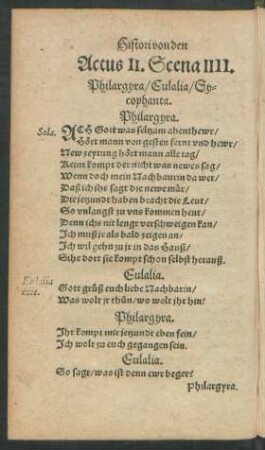 Histori von den
Actus II. Scena IIII.
Philargyra/ Eulalia/ Sy-
cophanta.
Philargyra.
Sola.
ACH Gott was seltzam abenthewr/
Hört mann von gesten fernt vnd hewr/
New zeytung hört mann alle tag/
Keine kompt der nicht was newes sag/
Wenn doch mein Nachbaurin da wer/
Daß ich ihr sagt die newe mär/
Die jetzundt haben bracht die Leut/
So vnlangst zu vns kommen heut/
Denn ichs nit lenger verschweigen kan/
Ich muß je als bald zeigen an/
Ich wil gehn zu jr in das Hauß/
Sihe dort sie kompt schon selbst herauß.
Eulalia.
Eulalia
exit.
Gott grüß euch liebe Nachbarin/
Was wolt jr thůn/ wo wolt ihr hin?
Philargyra.
Ihr kompt mir jetzundt eben fein/
Ich wolt zu euch gegangen sein.
Eulalia.
So sagt/ was ist denn ewr beger?
Philargyra.